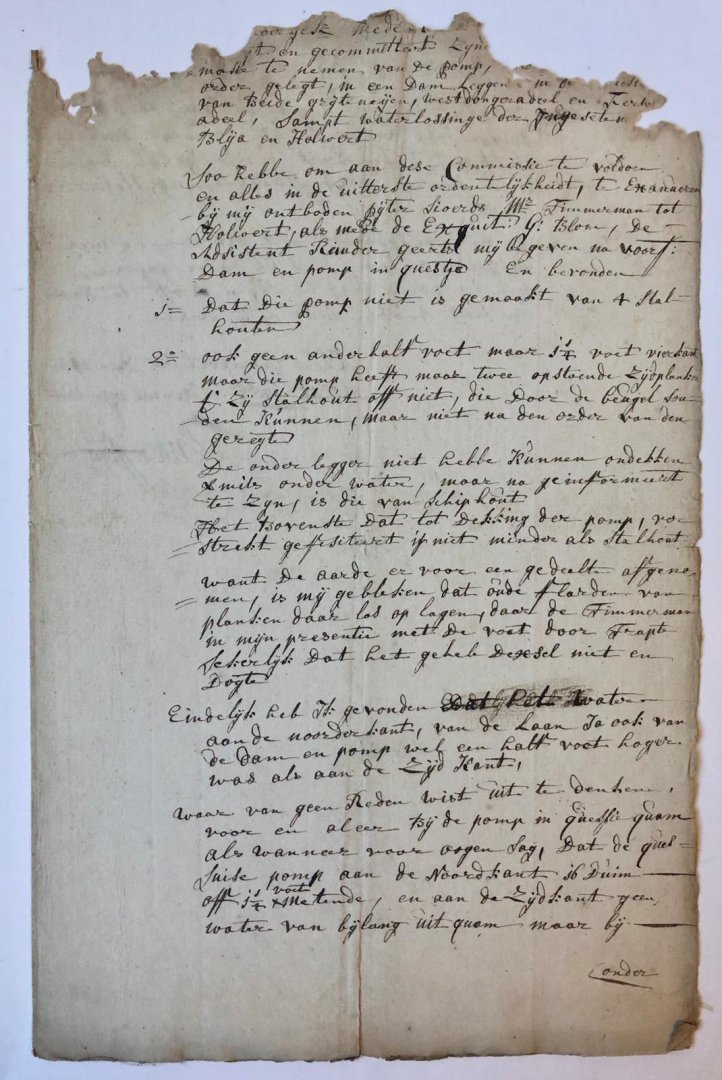 mede
en gecommitteert Zyn
= mosie te nemen van de pomp,
order gelegt, in een Dam Leggen in
van Beide grytenyen, westdongeradeel en ferw
adeel, Sampt waterlossinge der Ingesete
Blya en Holwert
Soo hebbe, om aan dese Commissie te voldoen
en alles in de uitterste ordentelijkheidt, te Examineren
bij mij ontboden pijter Sioerds Mr Timmerman tot
Holwert, als mede de Exquit: G: Blom, De
Adsistent Ruirder geerts mij begeven na voorss:
Dam en pomp in questje En bevonden
1= Dat Die pomp niet is gemaakt van 4 Stal-
houten
2= ook geen anderhalf voet maar 1¼ voet vierkant
maar die pomp heeft maar twee opstaende Zydplanken
't Zy Stalhout off niet, die Door de beugel sou-
den Kunnen, maar niet na den order van den
geregte
De onderlegger niet hebbe Kunnen ondekken
&mits onder water, maar na geinformeert
te Zyn, is die van Schiphout
Het Bovenste Dat tot Dekking der pomp, voe
= strekt gefisiteert is niet minder als Stalhout
want De aarde er voor een gedeelte afgeno
= men, is mij gebleken dat oude flarden van
planken daar los op lagen, daar de Timmerman
in mijn presentie met De voet door Trapte
Sekerlijk Dat het gehele Dexsel niet en
Dogte
Eindelijk heb Ik gevonden Dat het water
aan de noorderkant, van de Laan Ja ook van
de Dam en pomp wel een half voet hoger
was als aan de Zijd Kant,
Waar van geen Reden wist uit te denkene,
voor en aleer Bij de pomp in Quessie Quam
als wanneer voor oogen Sag, Dat de ques-
suise pomp aan de Noordkant 16 Duim
off 1¼ voet Metende, en aan de Zijdkant geen
water van bijlang uit quam maar bij
onder